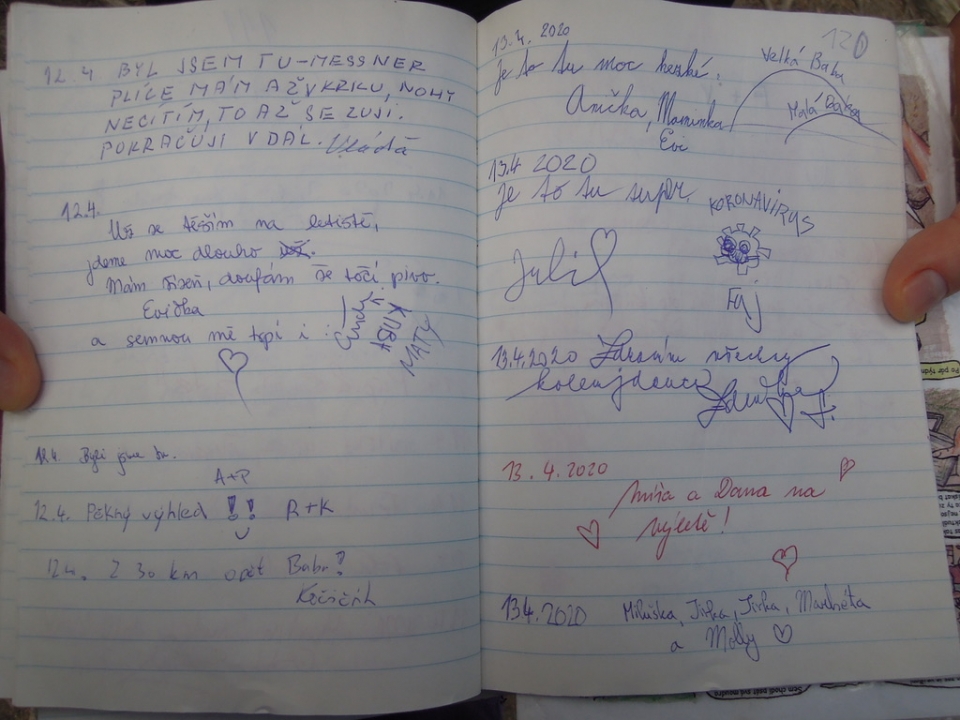 12.4 BYL JSEM TU-MESSNER
PLÍCE MÁM AŽ V KRKU, NOHY
NECÍTÍM, TO AŽ SE ZUJI.
POKRAČUJI V DÁL. Vláďa
12.4.
Už se těším na letiště,
jdeme moc dlouho
Mám žízeň, doufám že točí pivo.
Evička
a semnou mě trpí i :
KUBA
MATY
12.4. Byli jsme tu.
A+P
12.4. Pěkný výhled !! R+K
12.4. Z 30 km opět Baba!
13.4. 2020
Je to tu moc hezké.
Anička, Maminka
Evi
120
Velká Baba
Malá Baba
13.4 2020
Je to tu supr.
Julie
KORONAVIRUS
Fuj
13.4.2020 Zdravím všechny
kolemjdoucí
13.4.2020
Míša a Dana na
výletě!
13.4.2020 Miluška, Jirka, Jirka, Markéta
a Molly